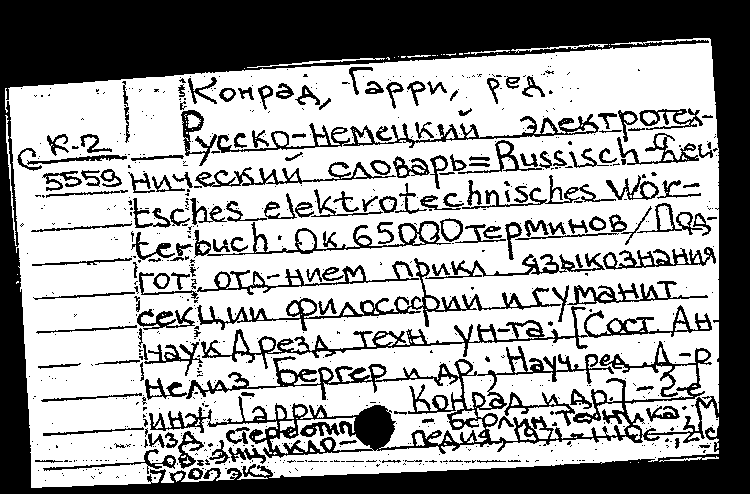 Конрад, Гарри, ред.
Русско-немецкий электротех-
С К.2
5559
нический словарь=Russisch-deu-
tsches elektrotechnisches Wör-
terbuch: Ок. 65000 терминов/Под-
гот. отд-нием прикл. языкознания
секции философии и гуманит.
наук Дрезд. техн. ун-та; [Сост. Ан-
нелиз Бергер и др.; Науч. ред. Д-р.
инж. Гарри Конрад и др.] - 2-е
изд., стереотип - Берлин: Техника; М
Сов. энцикло- педия, 1971.-
7000 экз